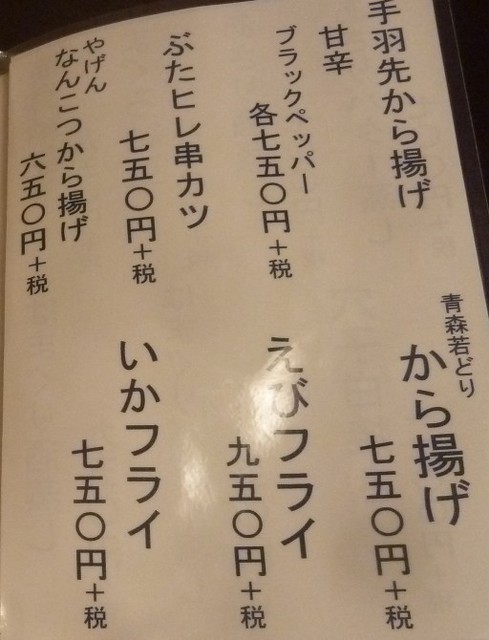 手羽先から揚げ
甘辛
ブラックペッパー
各七五〇円+税
ぶたヒレ串カツ
七五〇円+税
やげん
なんこつから揚げ
六五〇円+税
青森若どり
から揚げ
七五〇円+税
えびフライ
九五〇円+税
いかフライ
七五〇円+税